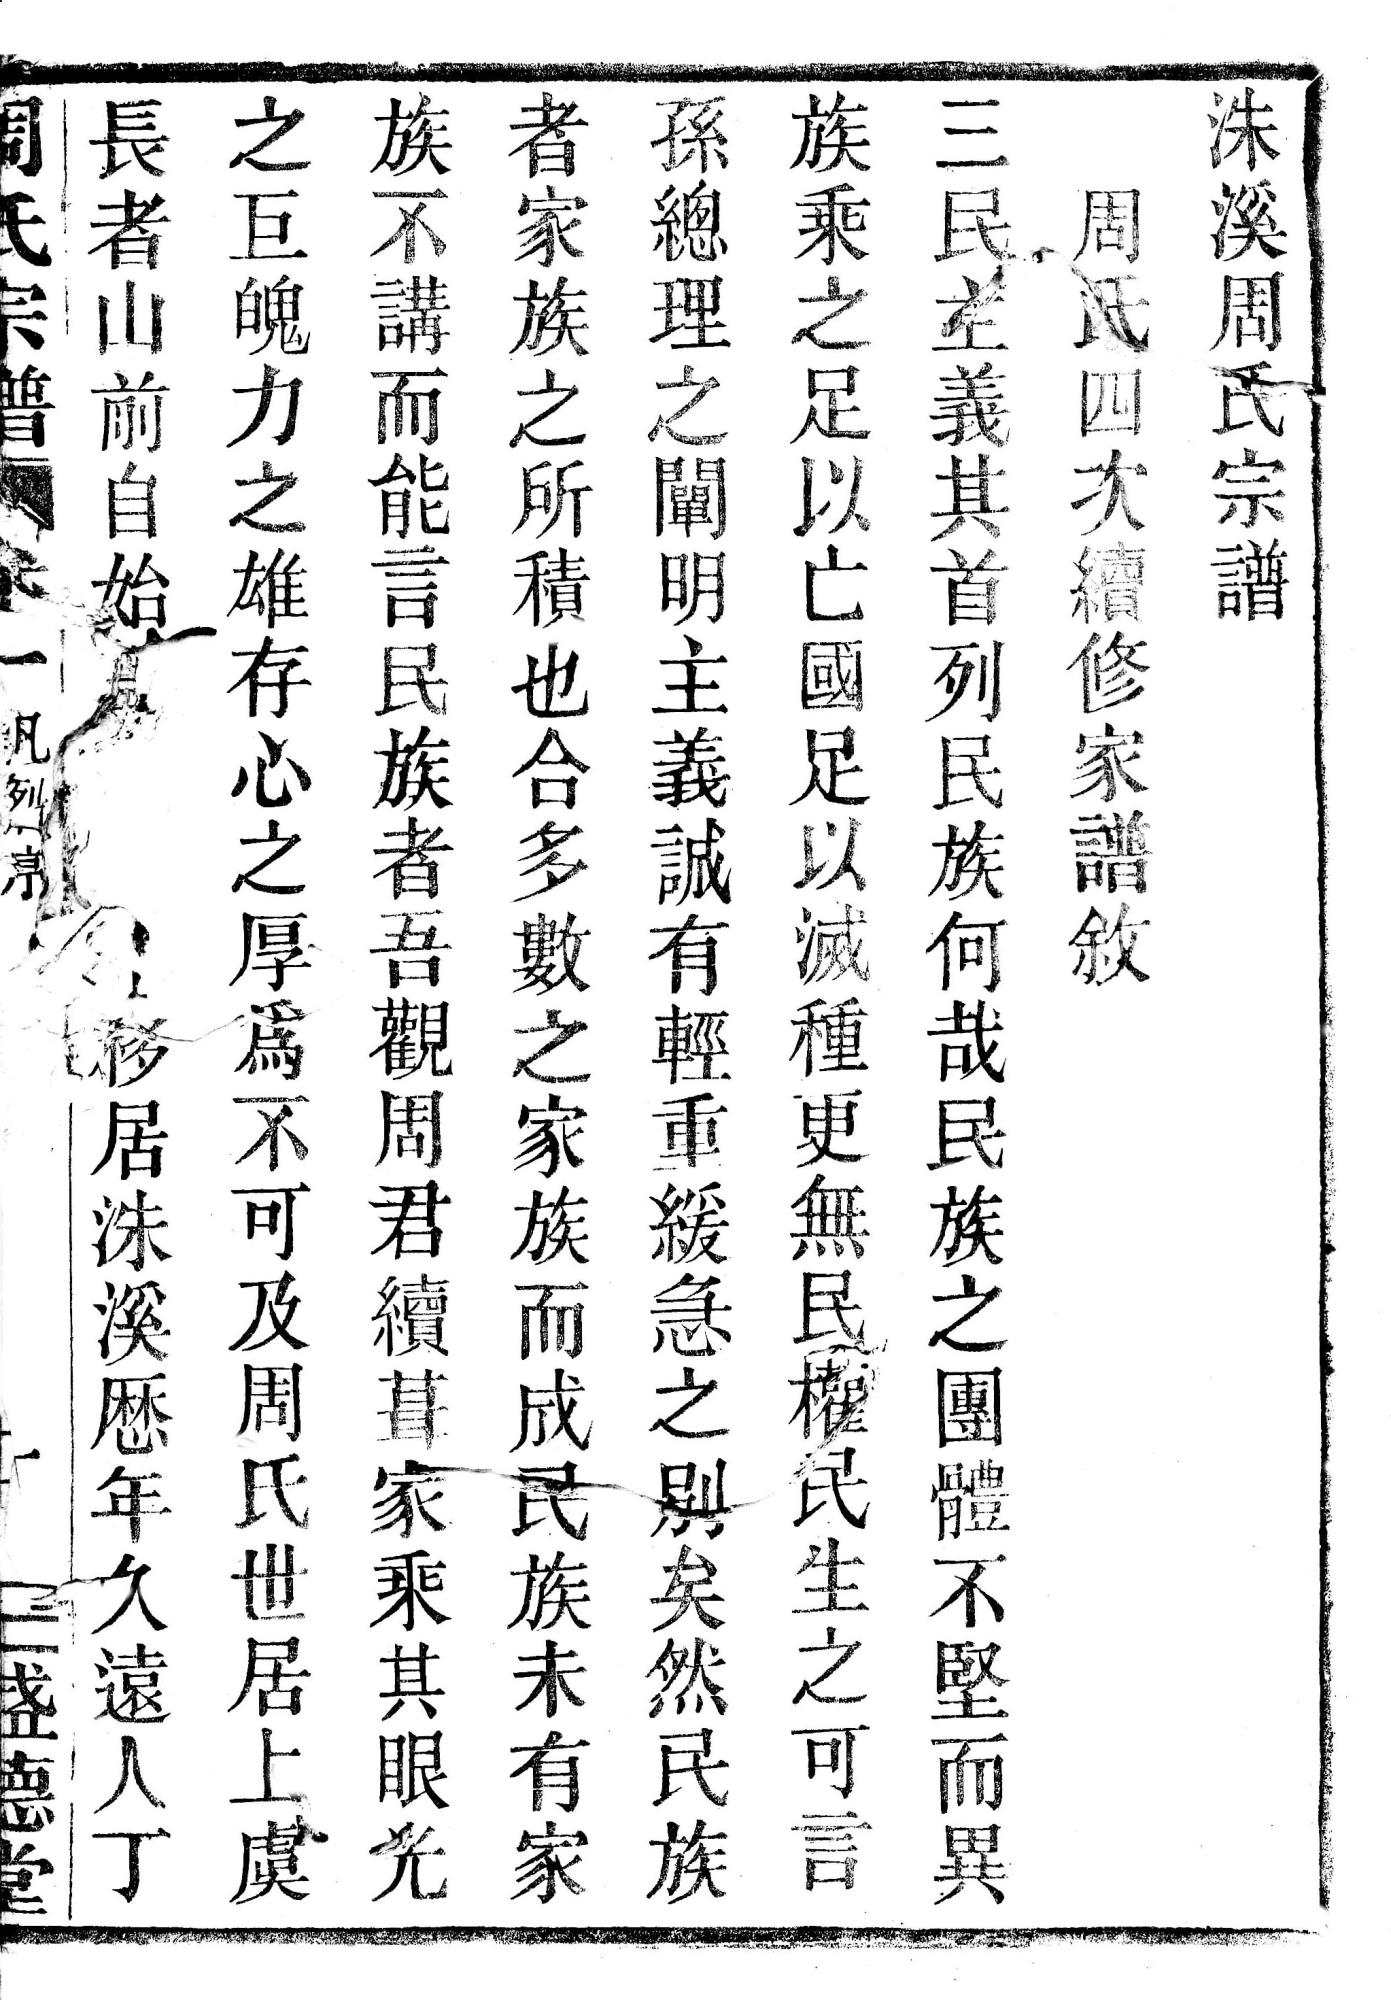 洙溪周氏宗譜
周氏四次續修家譜敘
三民主義其首列民族何哉民族之團體不堅而異
族乘之足以亡國足以滅種更無民權民生之可言
孫總理之闡明主義誠有輕重緩急之別矣然民族
者家族之所積也合多數之家族而成民族未有家
族不講而能言民族者吾觀周君續葺家乘其眼光
之巨魄力之雄存心之厚爲不可及周氏世居上虞
長者山前自始
移居洙溪歷年久遠人丁
周氏宗譜 卷一 凡列 盛德堂